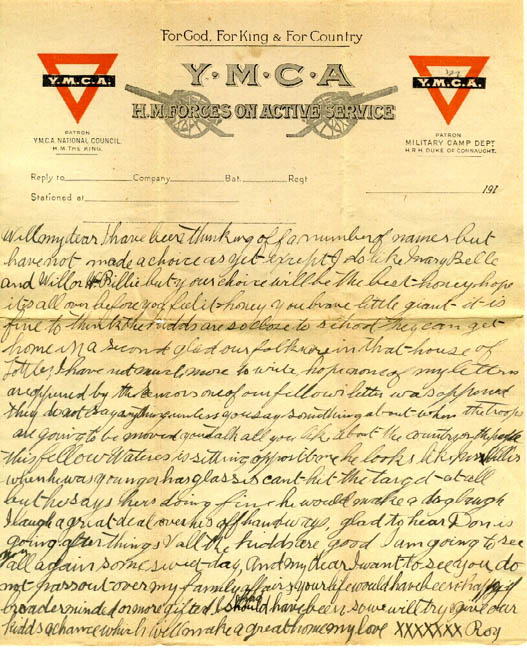 For God, For King & For Country
Y·M·C·A
H.M. FORCES ON ACTIVE SERVICE
Y.M.C.A.
PATRON
Y.M.C.A. NATIONAL COUNCIL.
H.M. THE KING.
Y.M.C.A.
PATRON
MILITARY CAMP DEPT
H.R.H. DUKE OF CONNAUGHT.
Reply to Company Bat. Regt
Stationed at
191
Will my dear I have been thinking of a number of names but
have not made a choice as yet except I do like Mary Belle
and Will or Billie but your choice will be the best honey hope
its all over before you feel it honey you brave little giant it is
fine to think the kidds are so close to school they can get
home in a second glad our folks are in that house of
I have not much more to write hope none of my letters
are opened by the censors one of our fellows letter was opened
they do not say anything unless you say something about when the troops
are going to be moved you talk all you like about the country or the people
this fellow Waters is sitting opposite me he looks like
when he was young has glasses cant hit the target at all
but he says hers doing fine he would make a dog laugh
I laugh a great deal over his off hand ways, glad to hear Don is
going after things & all the kidds are good I am going to see
you all again some sweet day, and my dear I want to see you do
not pass out over my family your life would have been
broader minded or more gifted I should have been so we will try give our
kidds a chance which will make a great home my love XXXXXXX Roy